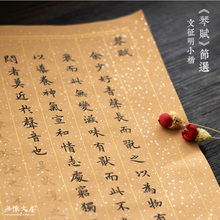 《琴賦》節選
文征明小楷
琴賦
余少好音聲長而翫之以為物有盛
衰而此無變滋味有猒而此不勌可
以導養神氣宣和情志處窮獨而不
悶者莫近於聲音也